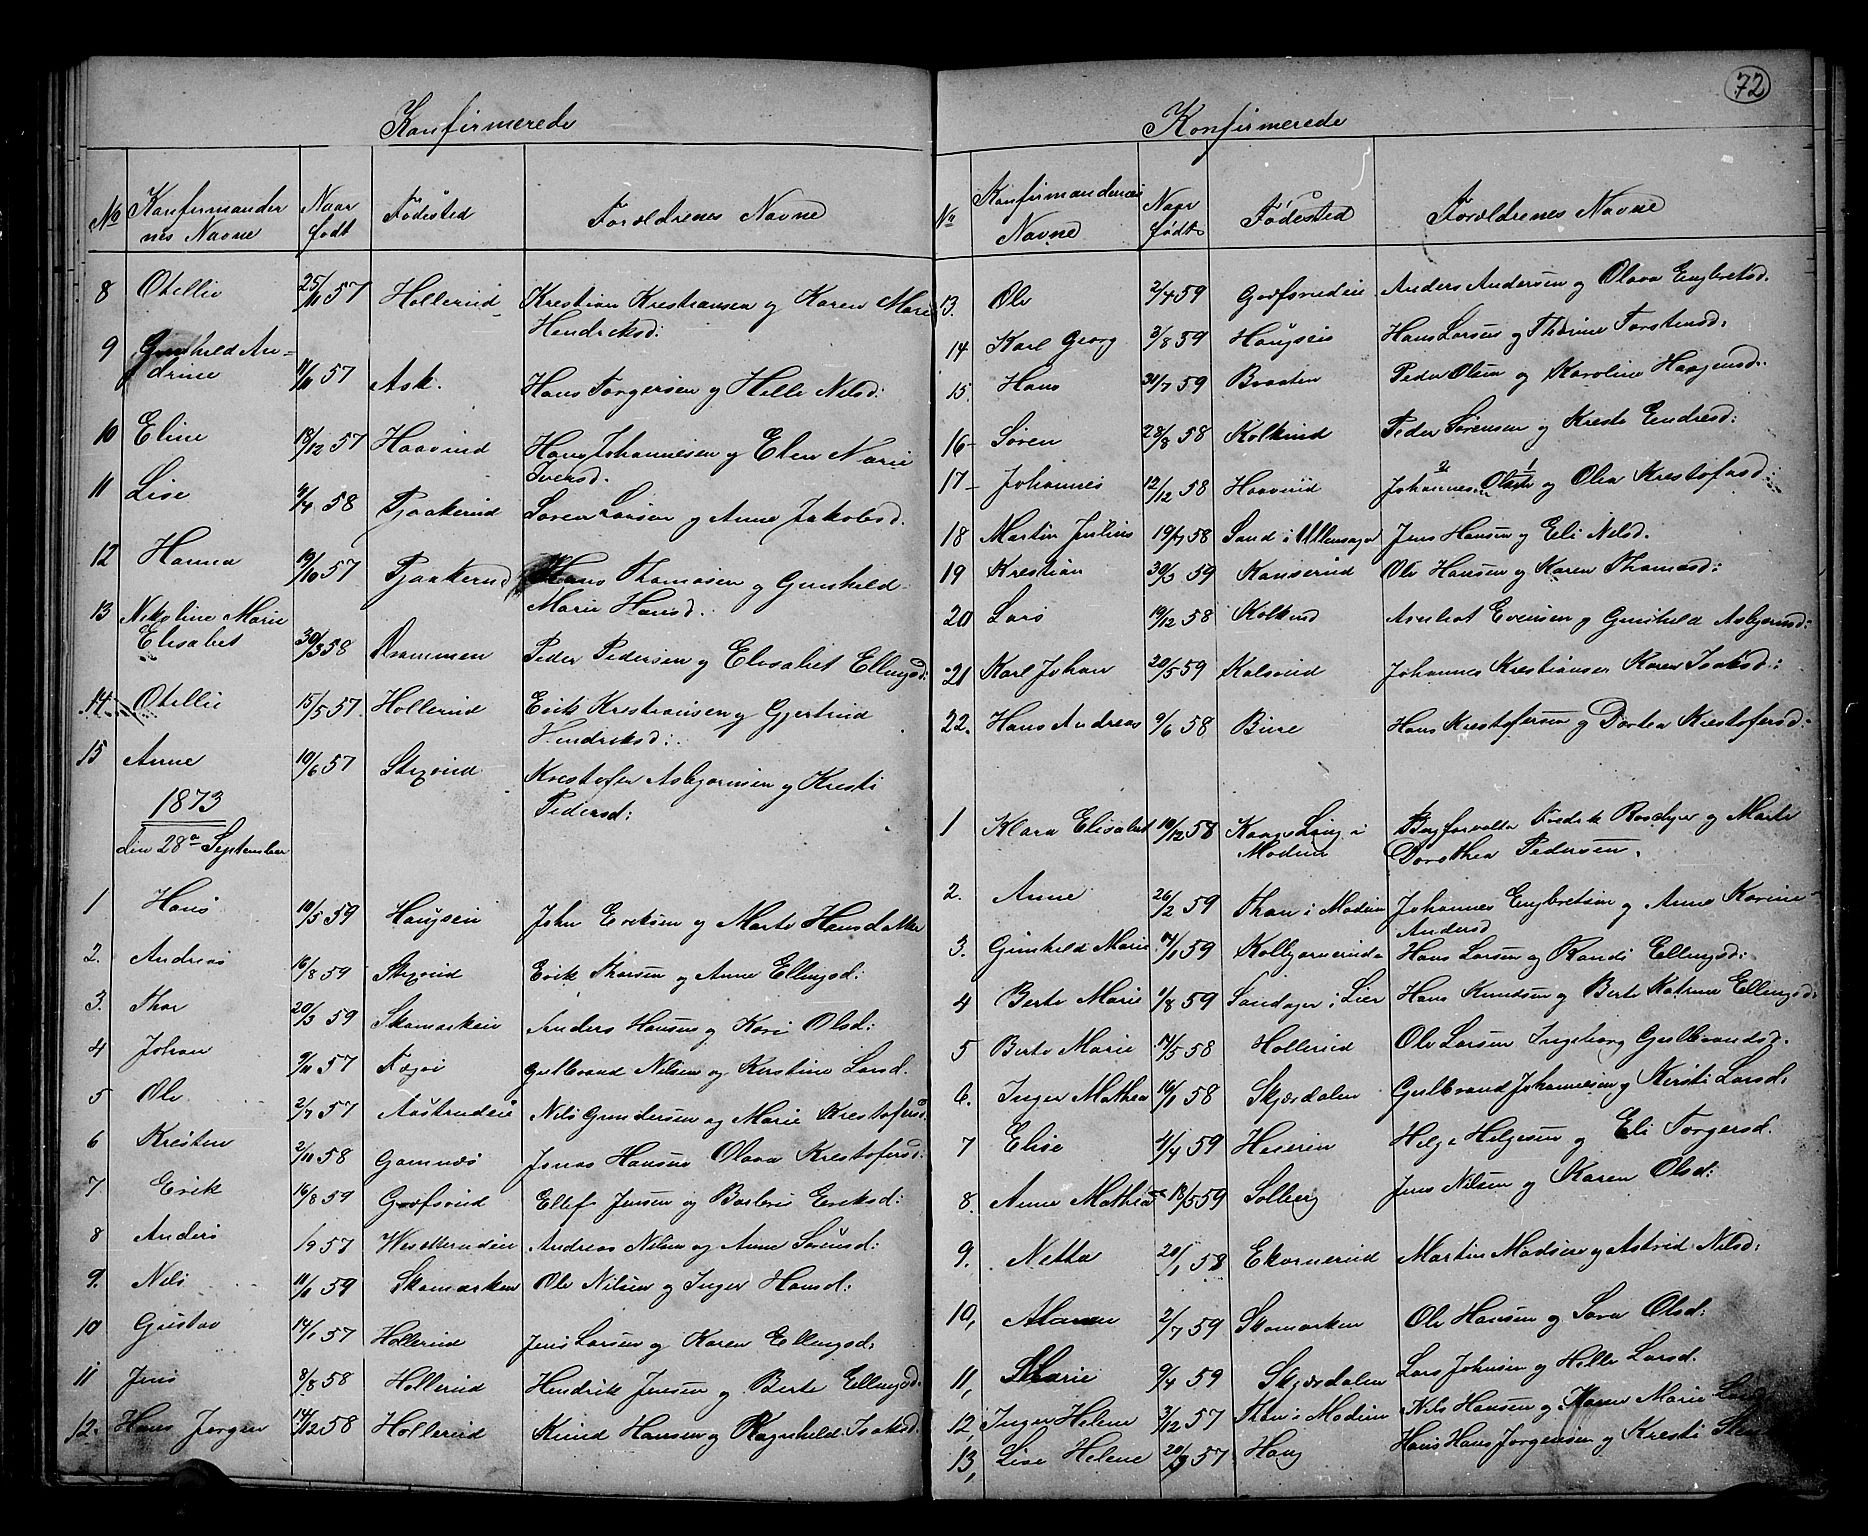 Konfirmerede
No Konfirmander nes Navne Naar født Fødested Forældrenes Navne
8 Otellie 25/11 57 Hollerud Kristian Kristiansen og Karen Marie
Hendriksd:
9 Gunhild An=
drine 11/11 57 Ask. Hans Torgersen og Helle Nilsd:
10 Eline 18/12 57 Haavind Hans Johannesen og Elen Marie
Iversd.
11 Lise 4/4 58 Tjaakerud Søren Larsen og Anne Jakobsd.
12 Hanna 19/10 57 Tjaakerud Hans Thomasen og Gunhild
Marie Hansd.
13 Nikoline Marie
Elisabet 30/3 58 Drammen Peder Pedersen og Elisabet Ellingsd:
14 Otellie 15/5 57 Hollerud Erik Kristiansen og Gjertrud
Hendriksd:
15 Anne 10/6 57 Kristofer Asbjørnsen og Kristi
Pedersd:
1873
den 28de September
1 Hans 10/5 59 Haugsein John Eriksen og Marte Hansdatter
2. Andreas 16/8 59 Erik Thorsen og Anne Ellingsd:
3. Thor 20/3 59 Skamarken Anders Hansen og Kari Olsd:
4 Johan 9/11 57 Gulbrand Nilsen og Kirstine Larsd.
5 Ole 2/7 57 Nils Gundersen og Marie Kristofersd.
6 Kristen 2/11 58 Gamnæs Jonas Hansen Olava Kristofersd:
7 Erik 16/8 59 Godfsrud Ellef Jensen og Barbro Eriksd:
8 Anders 19 57 Andreas Nilsen og Anne Sørensd:
9. Nils 11/6 59 Skamarken Ole Nilsen og Inger Hansd:
10 Gustav 14/1 57 Hollerud Jens Larsen og Karen Ellingsd.
11 Jens 8/8 58 Hollerud Hendrik Jensen og Berte Ellingsd.
12. Hans Jørgen 14/12 58 Hollerud Knud Hansen og Ragnhild Isaksd.
72
Konfirmerede
No Konfirmandenes Navne Naar født Fødested Forældrenes Navne
13. Ole 2/4 59 Godfsrudeie Anders Andersen og Olava Engbretsd.
14 Karl Georg 3/8 59 Haugseie Hans Larsen og Thorine Torstensd:
15. Hans 31/7 59 Braaten Peder Olsen og Karoline Haagensd.
16 Søren 28/8 58 Kolkind Peder Sørensen og Kristi Endresd:
17 Johannes 12/12 58 Haavind Johannesen Olaus og Olea Kristofersd:
18 Martin Julius 19/7 58 Sand i Ullensager Jens Hansen og Eli Nilsd.
19 Kristian 30/3 59 Kanserud Ole Hansen og Karen Thomasd:
20 Lars 19/12 58 Kolkind Evensen og Gunhild Asbjørnsd:
21 Karl Johan 20/5 59 Kalsrud Johannes Kristiansen Karen Isaksd:
22. Hans Andreas 9/6 58 Bure Hans Kristofersen og Dortea Kristofersd.
1 Klara Elisabet 10/12 58 i
Modum Bergforvalter Fredrik og Marte
Dorothea Pedersen.
2. Anne 26/2 59 Than i Modum Johannes Engbretsen og Anne Karine
Andersd
3. Gunhild Marie 7/1 59 Kolbjørnrud Hans Larsen og Randi Ellingsd:
4 Berte Marie 1/8 59 Sandager i Lier Hans Knudsen og Berte Katrine Ellingsd:
5 Berte Marie 17/5 58 Hollerud Ole Larsen Ingeborg Gulbrandsd.
6. Inger Mathea 16/1 58 Skjærdalen Gulbrand Johannesen og Kirsti Larsd:
7 Elise 4/4 59 Heieren Helge Helgesen og Eli Torgersd.
8. Anne Mathea 18/5 59 Solberg Jens Nilsen og Karen Olsd:
9. Netta 20/1 58 Ekornerud Martin Madsen og Astrid Nilsd:
10, Maren 2/7 59 Skamarken Ole Hansen og Sara Olsd:
11, Marie 9/4 59 Skjærdalen Lars Johnsen og Helle Larsd.
12, Inger Helene 3/12 57 Than i Modum Nils Hansen og Marie
13, Lise Helene 20/9 57 Haug Hans Hans Jørgensen og Kristi